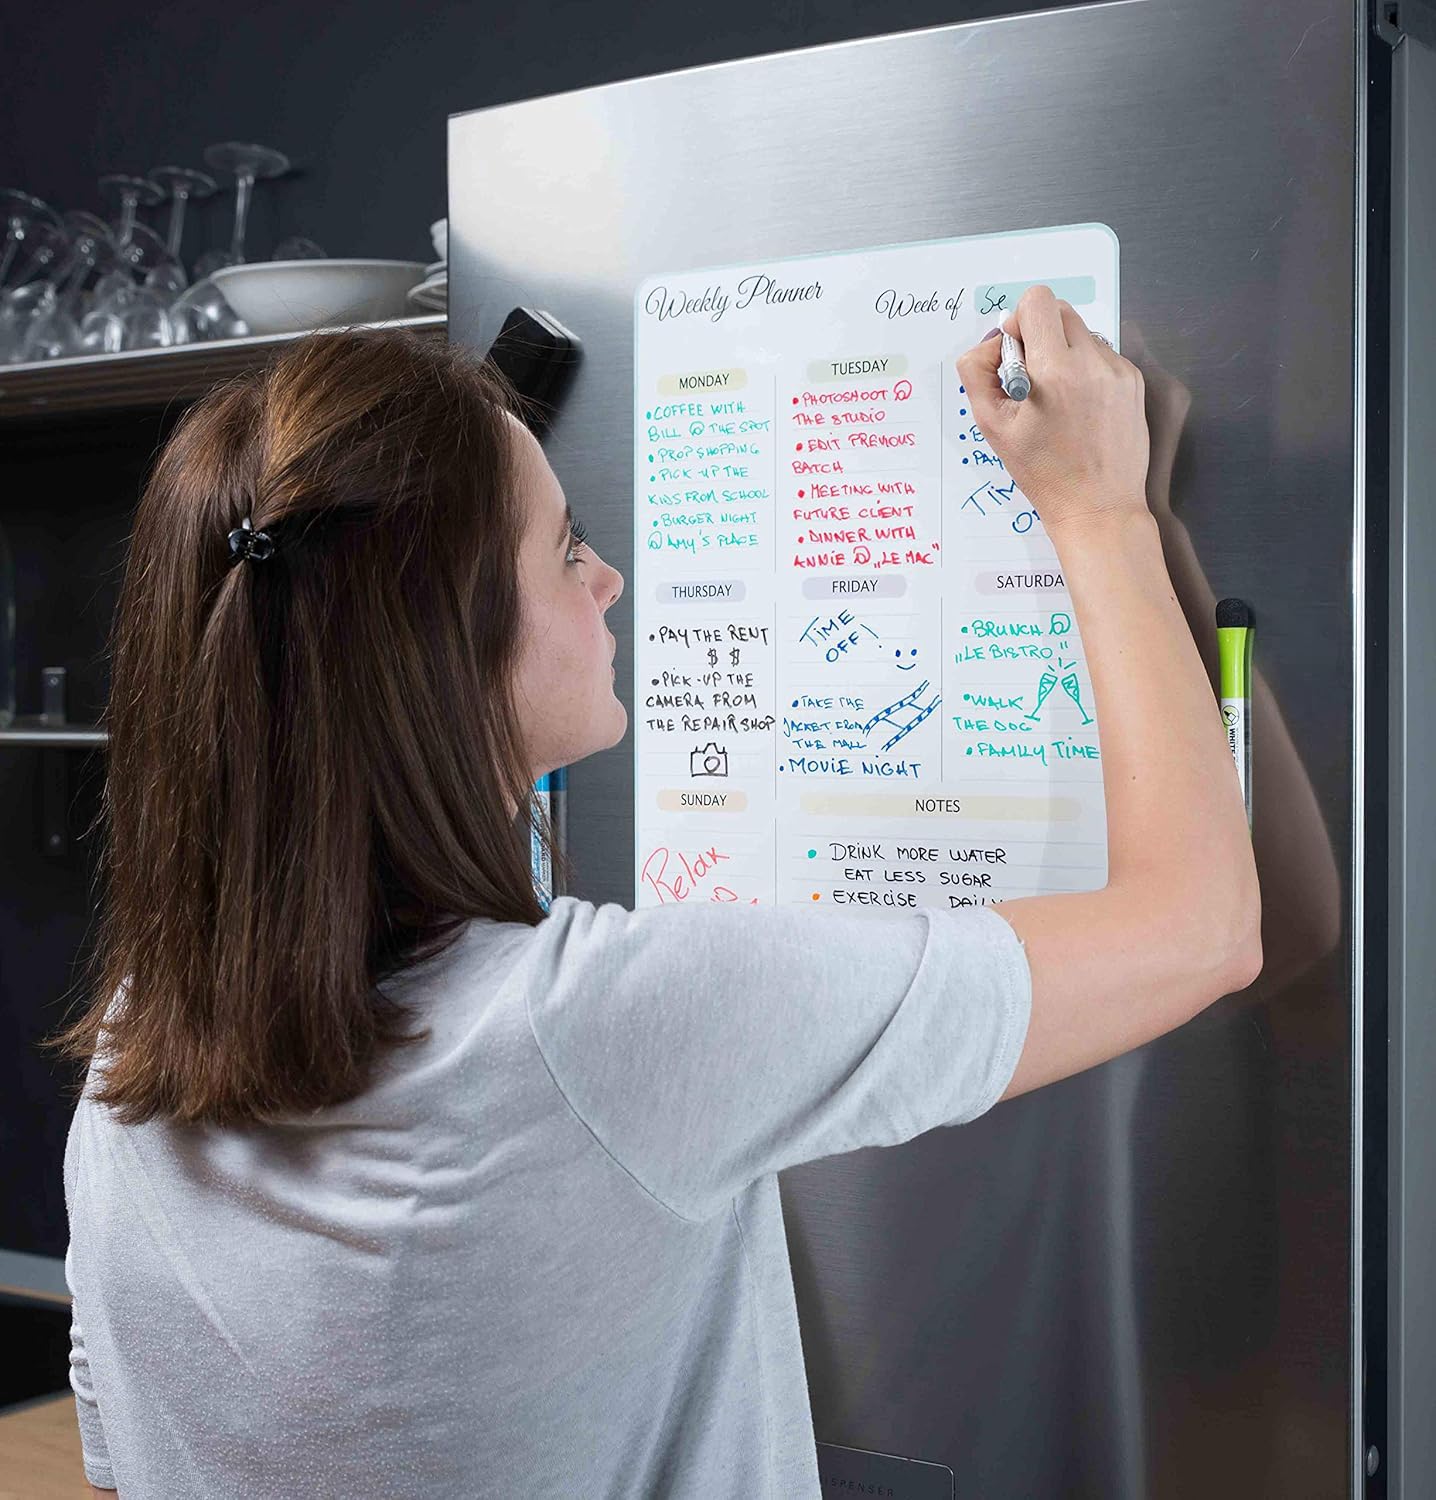 Weekly Planner
Week of Se
MONDAY
• COFFEE WITH
BILL @ THE SPOT
• PROP SHOPPING
• PICK-UP THE
KIDS FROM SCHOOL
• BURGER NIGHT
@ AMY'S PLACE
TUESDAY
• PHOTOSHOOT @
THE STUDIO
• EDIT PREVIOUS
BATCH
• MEETING WITH
FUTURE CLIENT
• DINNER WITH
ANNIE @ „LE MAC"
• PAY
TIM
THURSDAY
• PAY THE RENT
$ $
• PICK-UP THE
CAMERA FROM
THE REPAIR SHOP
FRIDAY
TIME
OFF!
• TAKE THE
JACKET FROM
THE MALL
• MOVIE NIGHT
SATURDA
• BRUNCH @
„LE BISTRO"
• WALK
THE DOG
• FAMILY TIME
SUNDAY
Relax
NOTES
• DRINK MORE WATER
EAT LESS SUGAR
• EXERCISE DAILY
WHITE
SPENSER